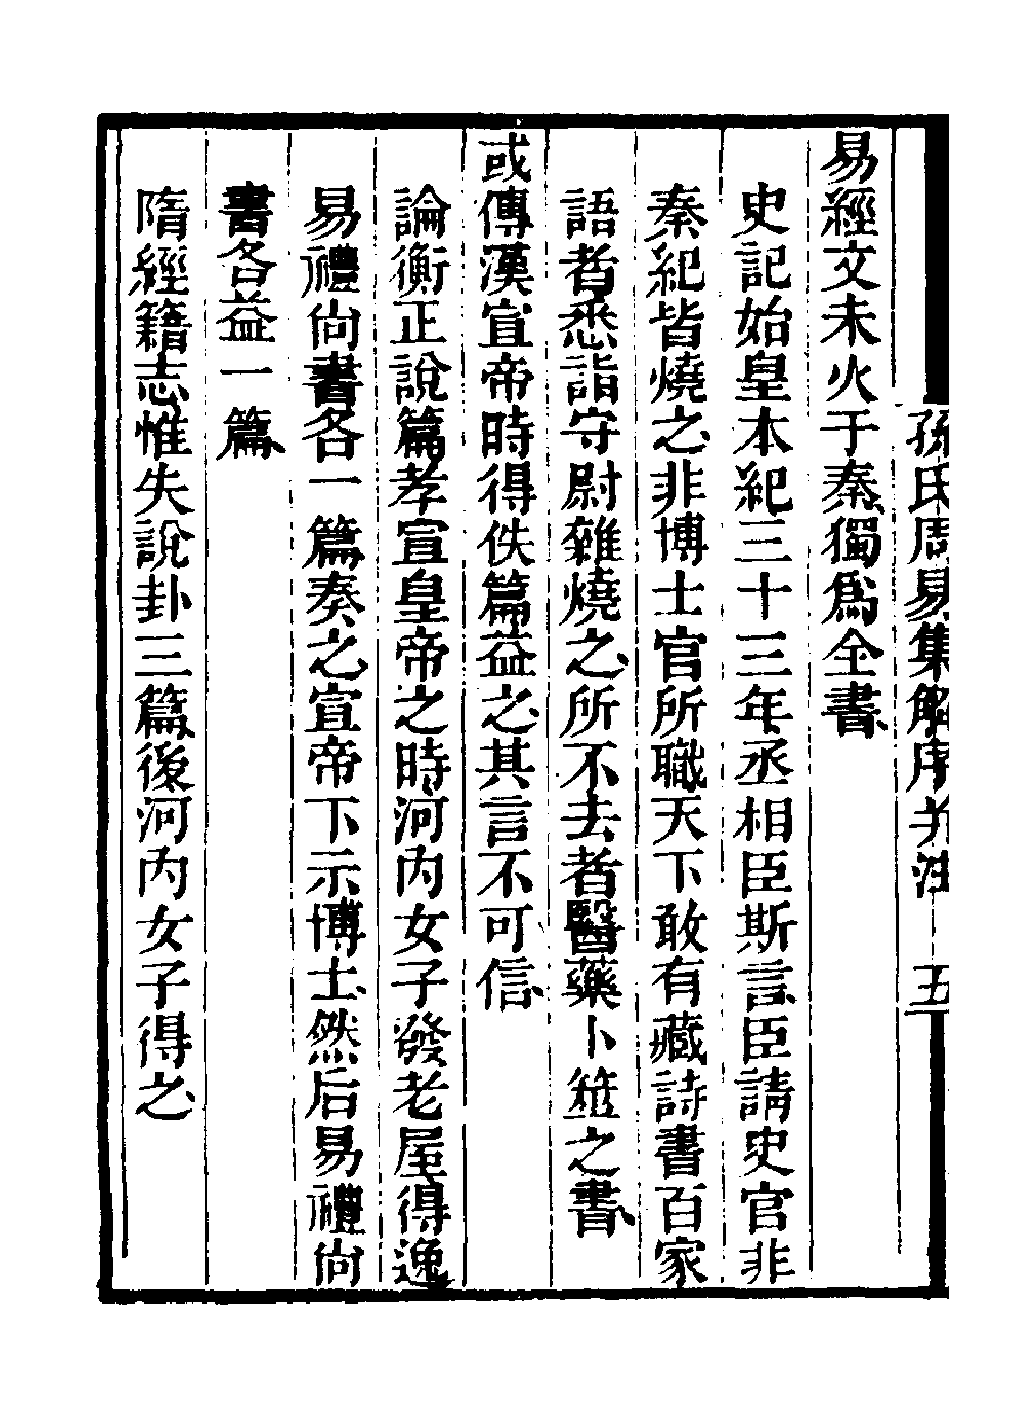 孫氏周易集解序并注 五
易經文未火于秦獨爲全書
史記始皇本紀三十三年丞相臣斯言臣請史官非
秦紀皆燒之非博士官所職天下敢有藏詩書百家
語者悉詣守尉雜燒之所不去者醫藥卜筮之書
或傳漢宣帝時得佚篇益之其言不可信
論衡正說篇孝宣皇帝之時河內女子發老屋得逸
易禮尙書各一篇奏之宣帝下示博士然后易禮尙
書各益一篇
隋經籍志惟失說卦三篇後河內女子得之